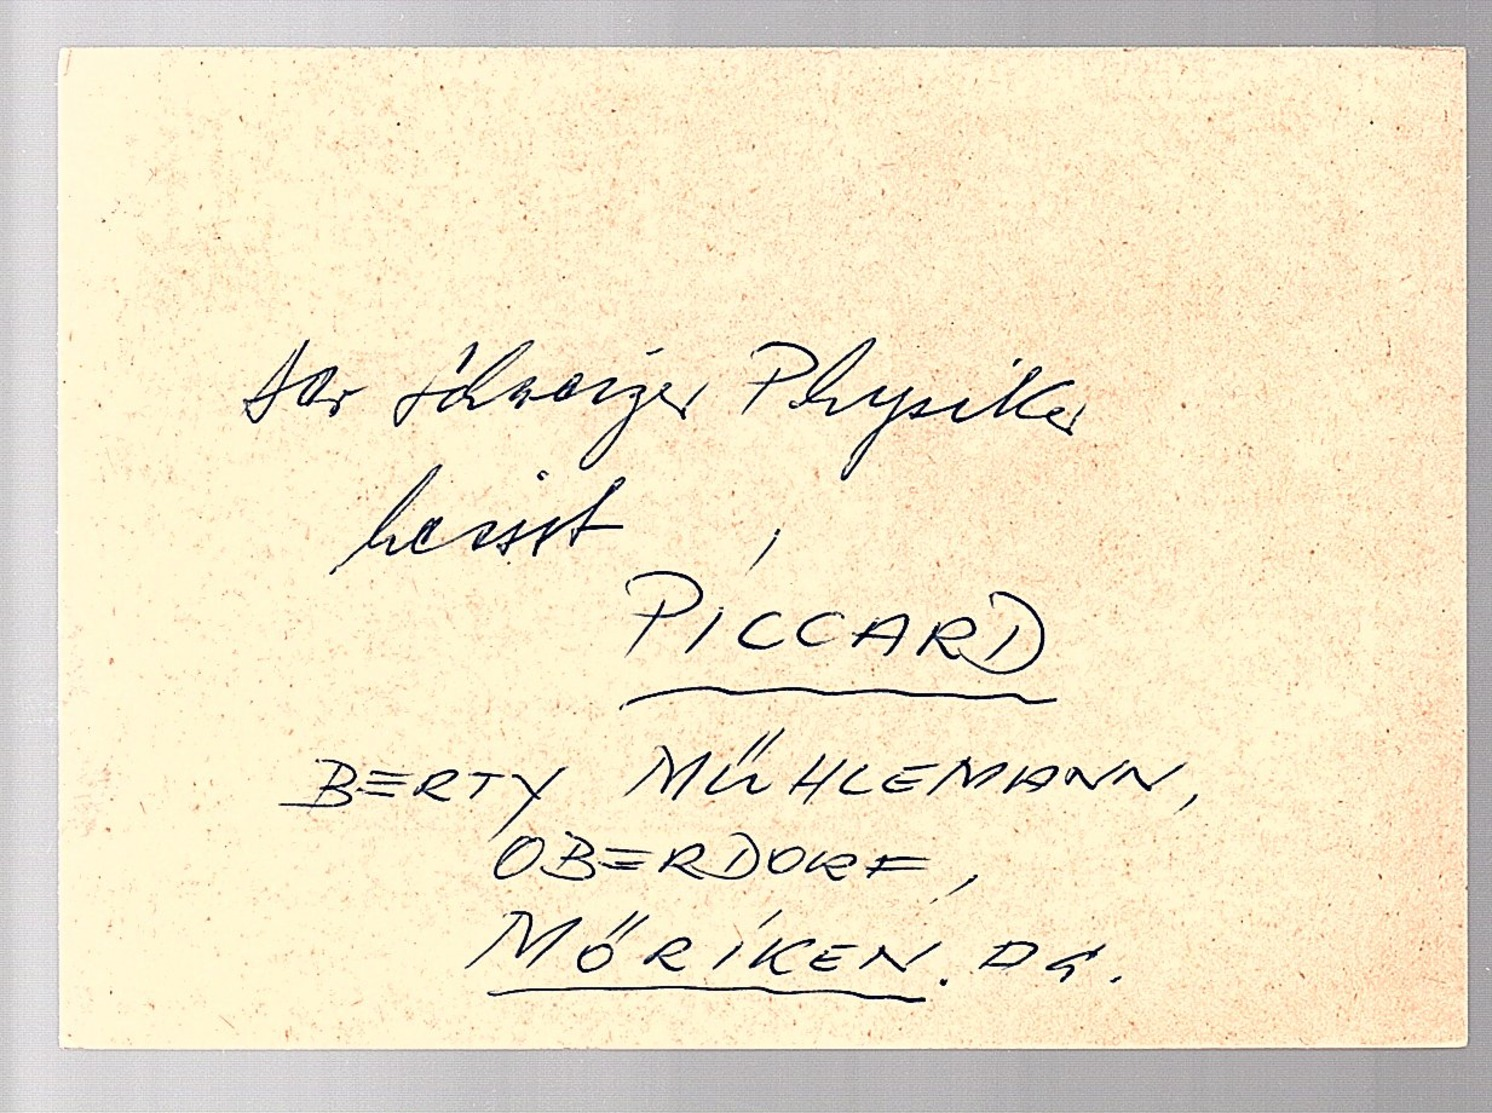 der Schweizer Physiker
heisst
PICCARD
BERTY MÜHLEMANN,
OBERDORF,
MÖRIKEN.